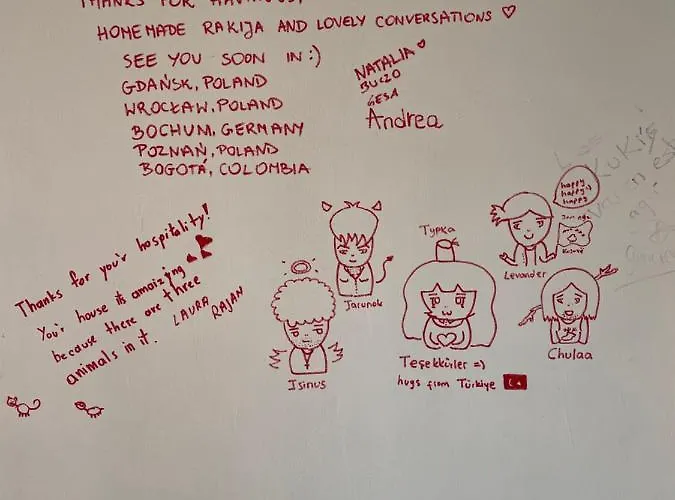 THANKS FOR HAVING US,
HOMEMADE RAKIJA AND LOVELY CONVERSATIONS ♡
SEE YOU SOON IN :)
GDAŃSK, POLAND
WROCŁAW, POLAND
BOCHUM, GERMANY
POZNAŃ, POLAND
BOGOTÁ, COLOMBIA
NATALIA ♡
BUCZO
GESA
Andrea
Thanks for you'r hospitality!
You'r house is amaizing
because there are three
animals in it.
LAURA
RAJAN
Jarunok
Isinus
Typka
Teşekkürler =)
hugs from Türkiye
Levander
happy
happy :)
happy
Chulaa